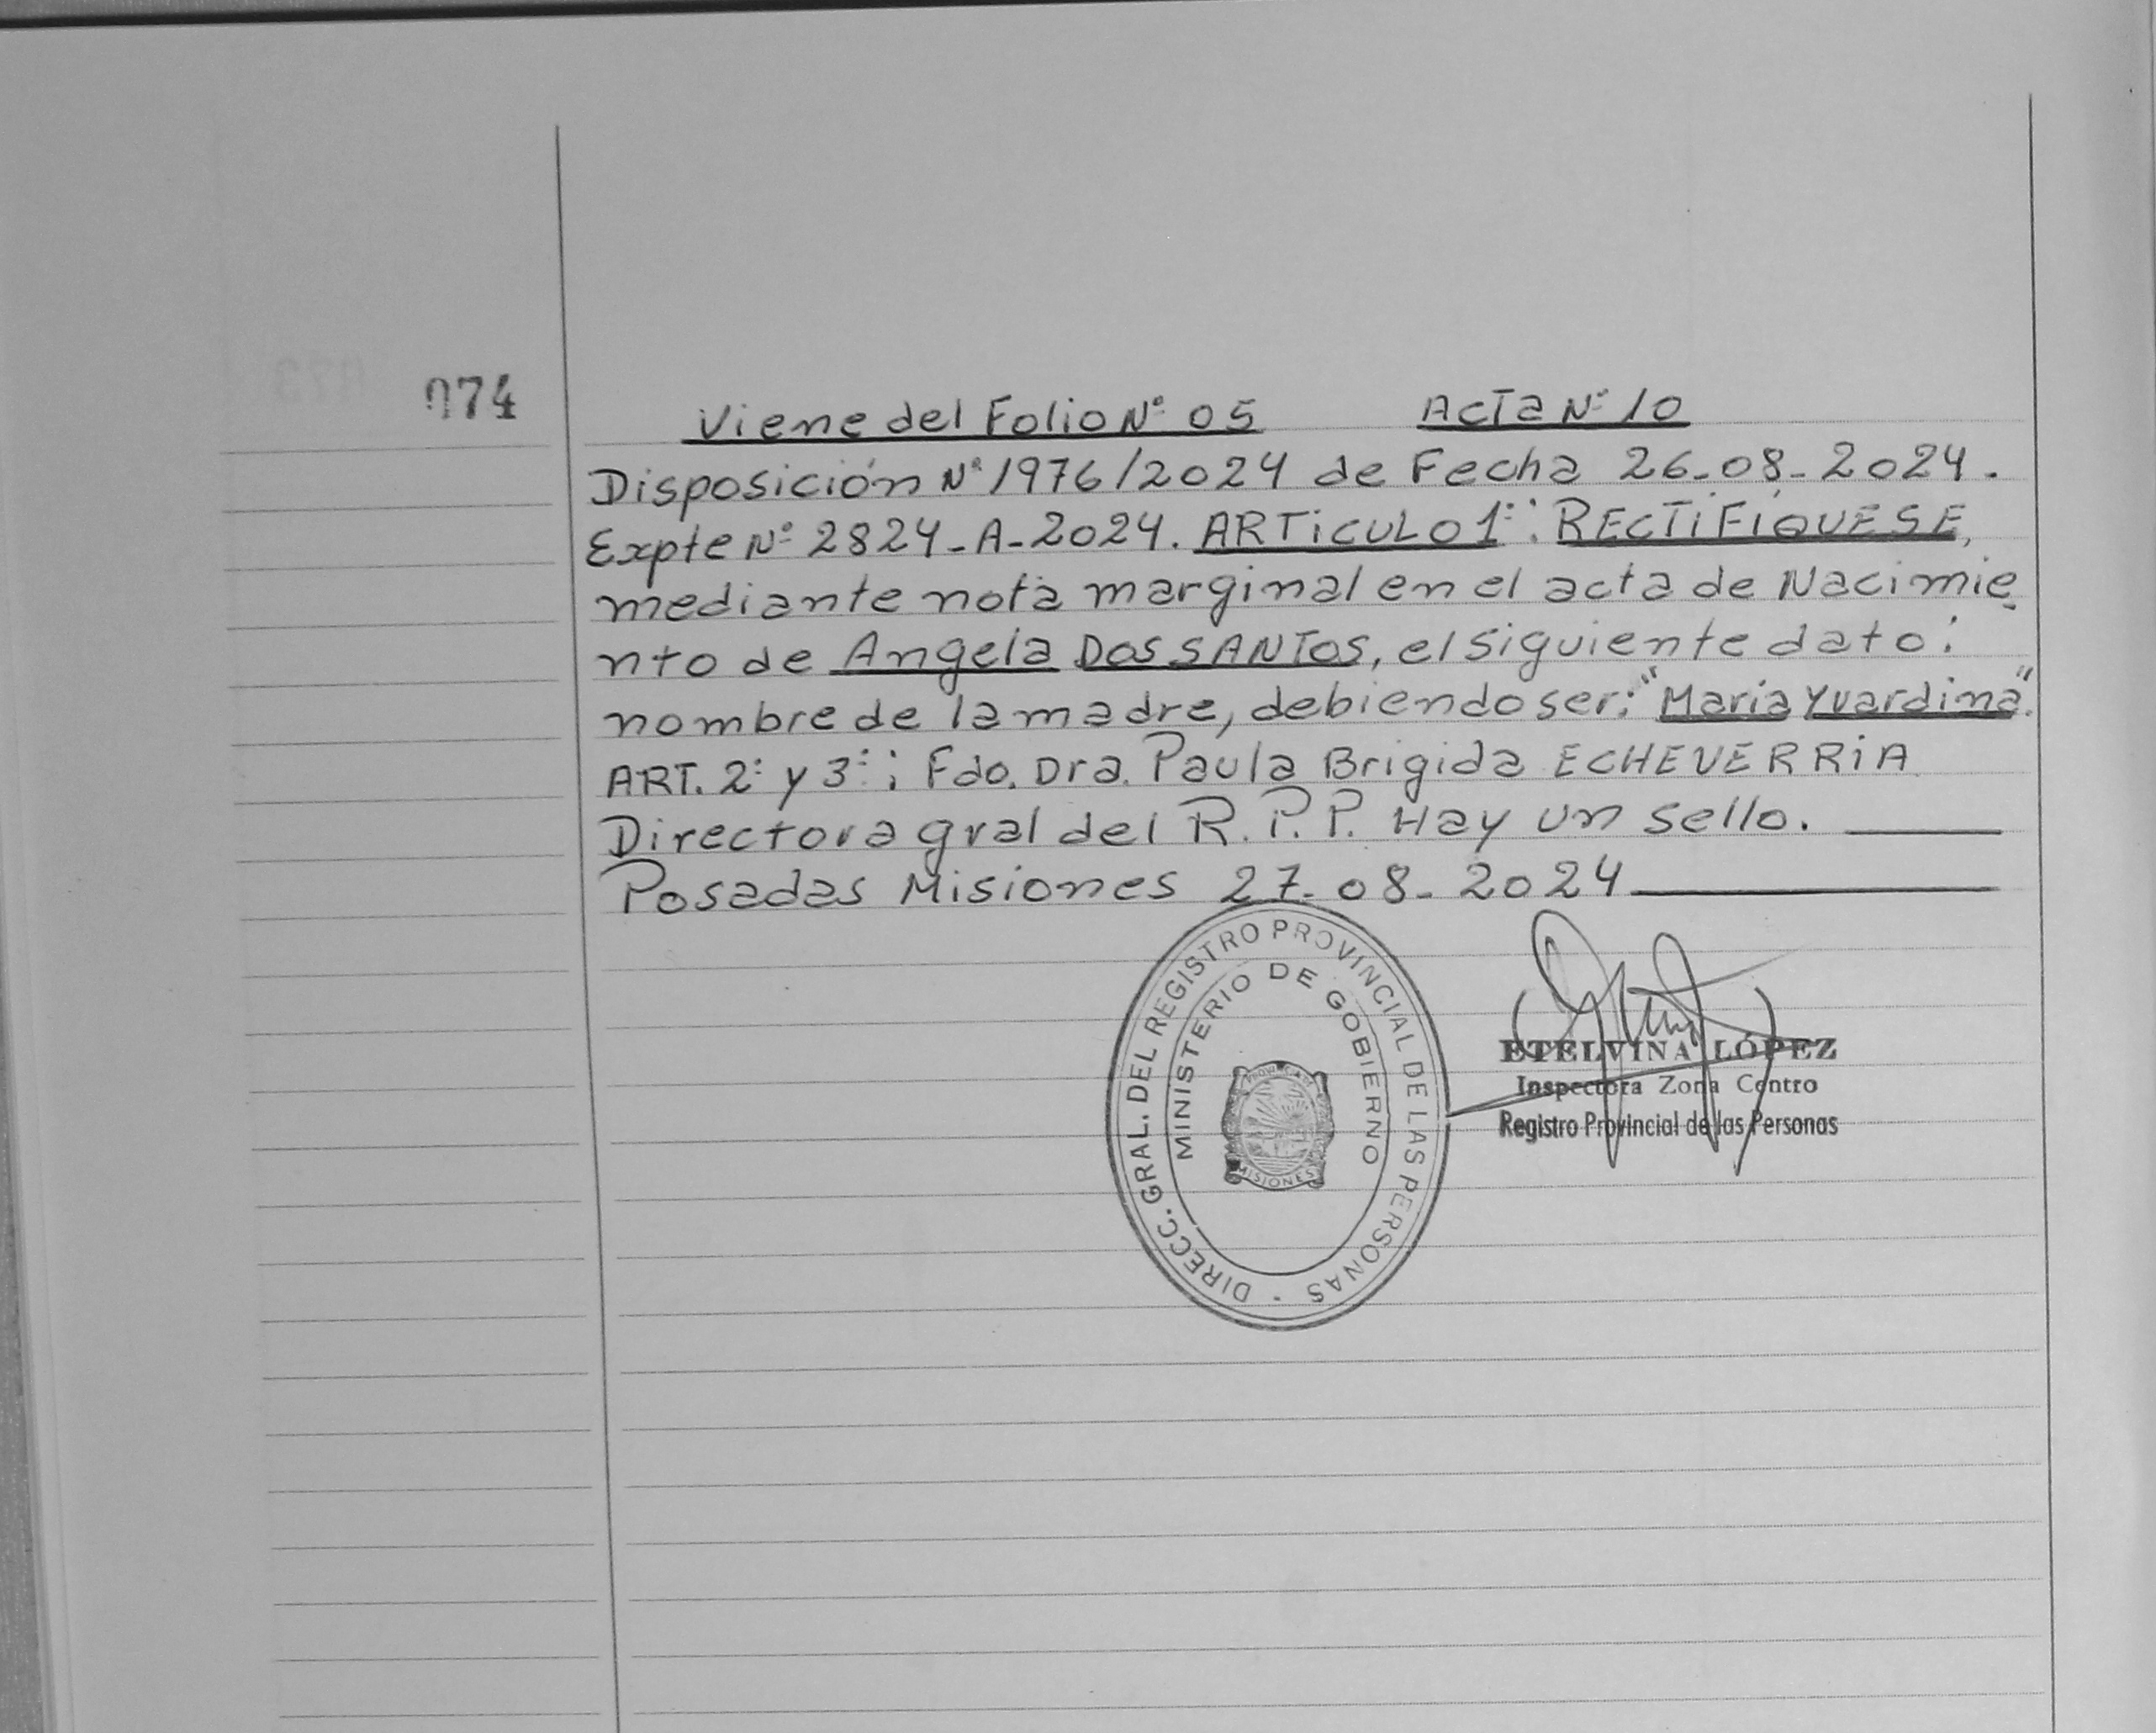 074
Viene del Folio Nº 05 Acta Nº 10
Disposición Nº 1976/2024 de Fecha 26-08-2024.
Expte Nº 2824-A-2024. ARTiCULO 1º: RECTiFiQUESE,
mediante nota marginal en el acta de Nacimie
nto de Angela DOS SANTOS, el siguiente dato:
nombre de la madre, debiendo ser: "Maria Yvardina".
ART. 2º y 3º: Fdo. Dra. Paula Brigida ECHEVERRiA
Directora gral del R.P.P. Hay un sello.
Posadas Misiones 27-08-2024
DIRECC. GRAL. DEL REGISTRO PROVINCIAL DE LAS PERSONAS
MINISTERIO DE GOBIERNO
MISIONES
ETELVINA LÓPEZ
Inspectora Zona Centro
Registro Provincial de las Personas